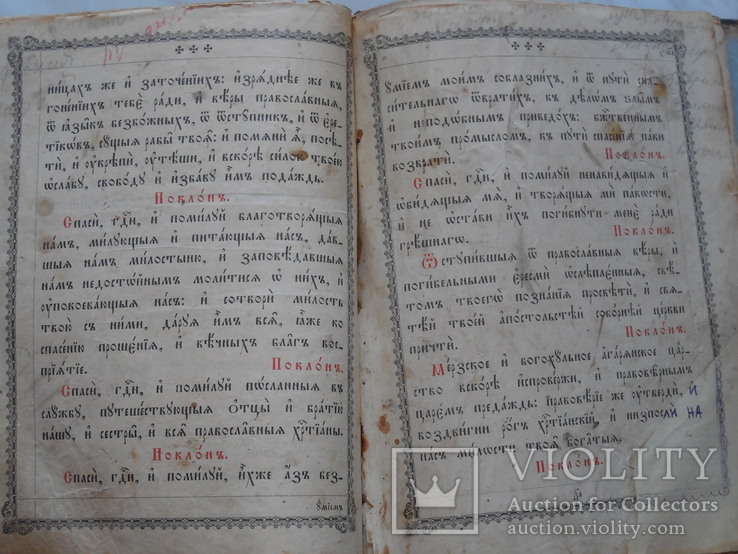 ницахъ же и҆ заточе́нїихъ: и҆зря́днѣе же въ
гоне́нїихъ тебє̀ ра́ди, и҆ вѣ́ры правосла́вныя,
ѿ ꙗ҆зы̑къ безбо́жныхъ, ѿ ѿстꙋ̑пникъ, и҆ ѿ є҆ре-
тїкѡ́въ, сꙋ́щыя рабы̑ твоѧ̑: и҆ помѧнѝ ѧ҆̀, посѣ-
тѝ, и҆ ᲂу҆крѣпѝ, ᲂу҆тѣ́ши, и҆ вско́рѣ си́лою твое́ю
ѡ҆сла́бꙋ, свобо́дꙋ и҆ и҆зба́вꙋ и҆̀мъ пода́ждь.
Покло́нъ.
Спасѝ, гдⷭ҇и, и҆ поми́лꙋй благотворѧ́щыя
на́мъ, ми́лꙋющыя и҆ пита́ющыя на́съ, да́в-
шыя на́мъ ми́лостыню, и҆ заповѣ́давшыя
на́мъ недосто́йнымъ моли́тисѧ ѡ҆ ни́хъ, и҆
ᲂу҆покоева́ющыя на́съ: и҆ сотворѝ ми́лость
твою̀ съ ни́ми, да́рꙋя и҆̀мъ всѧ̑, ꙗ҆̀же ко
спасе́нїю проше́нїя, и҆ вѣ́чныхъ бла́гъ вос-
прїѧ́тїе. Покло́нъ.
Спасѝ, гдⷭ҇и, и҆ поми́лꙋй по́сланныя въ
слꙋ́жбꙋ, пꙋтеше́ствꙋющыя ѻ҆тцы̀ и҆ бра́тїю
на́шꙋ, и҆ сестры̀, и҆ всѧ̑ правосла́вныя хрⷭ҇тїа́ны.
Покло́нъ.
Спасѝ, гдⷭ҇и, и҆ поми́лꙋй, и҆̀хже а҆́зъ без-
ᲂу҆́мїемъ
ᲂу҆́мїемъ мои́мъ соблазни́хъ, и҆ ѿ пꙋтѝ спа-
си́тельнагѡ ѿврати́хъ, къ дѣлѡ́мъ ѕлы̑мъ
и҆ неподѡ́бнымъ приведо́хъ: бж҇е́ственнымъ
твои́мъ про́мысломъ, къ пꙋтѝ спасе́нїя па́ки
возвратѝ. Покло́нъ.
Спасѝ, гдⷭ҇и, и҆ поми́лꙋй ненави́дящыя и҆
ѡ҆би́дящыя мѧ̀, и҆ творѧ́щыя мѝ па́кости,
и҆ не ѡ҆ста́ви и҆́хъ поги́бнꙋти менє̀ ра́ди
грѣ́шнагѡ. Покло́нъ.
Ѿстꙋпи́вшыя ѿ правосла́вныя вѣ́ры, и҆
поги́бельными є҆ресьмѝ ѡ҆слѣпле́нныя, свѣ́-
томъ твоегѡ̀ позна́нїя просвѣтѝ, и҆ свѧ-
тѣ́й твое́й а҆по́стольстѣй собо́рнѣй це́ркви
причтѝ. Покло́нъ.
Ме́рзское и҆ богохꙋ́льное а҆гарѧ́нское ца́р-
ство вско́рѣ и҆спрове́ржи, и҆ правовѣ́рнымъ
царе́мъ преда́ждь: правовѣ́рїе же ᲂу҆твердѝ, и
воздви́гни ро́гъ хрⷭ҇тїа́нскїй, и҆ низпослѝ на
на́съ ми́лости твоѧ̑ бога́тыя.
Покло́нъ.
VIOLITY
Auction for Collectors
auction.violity.com